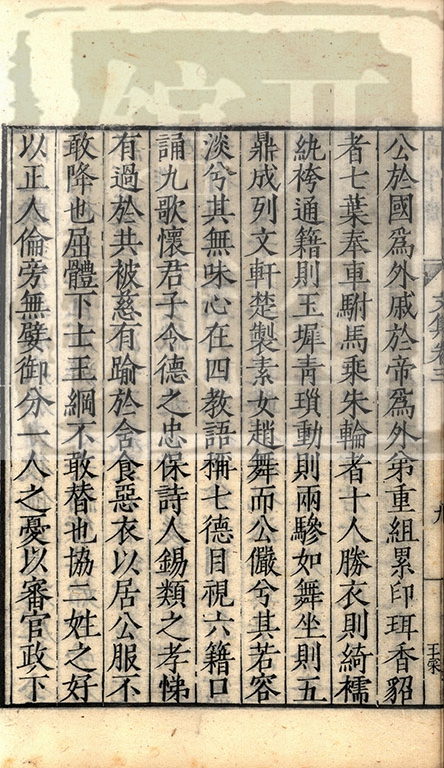 公於國爲外戚於帝爲外弟重組累印珥香貂
者七葉奉車駙馬乘朱輪者十人勝衣則綺襦
紈袴通籍則玉墀靑瑣動則兩驂如舞坐則五
鼎成列文軒楚製素女趙舞而公儼兮其若容
淡兮其無味心在四教語稱七德目視六籍口
誦九歌懷君子令德之忠保詩人錫類之孝悌
有過於共被慈有踰於舍食惡衣以居公服不
敢降也屈體下士王綱不敢替也協二姓之好
以正人倫旁無嬖御分一人之憂以審官政下